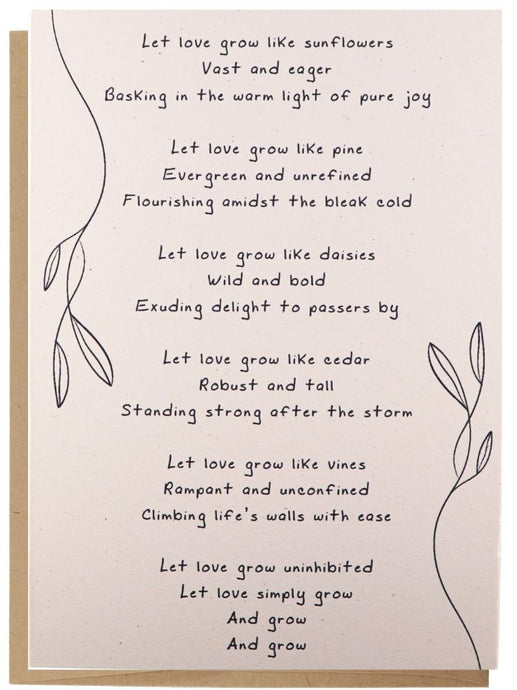 Let love grow like sunflowers
Vast and eager
Basking in the warm light of pure joy
Let love grow like pine
Evergreen and unrefined
Flourishing amidst the bleak cold
Let love grow like daisies
Wild and bold
Exuding delight to passers by
Let love grow like cedar
Robust and tall
Standing strong after the storm
Let love grow like vines
Rampant and unconfined
Climbing life's walls with ease
Let love grow uninhibited
Let love simply grow
And grow
And grow